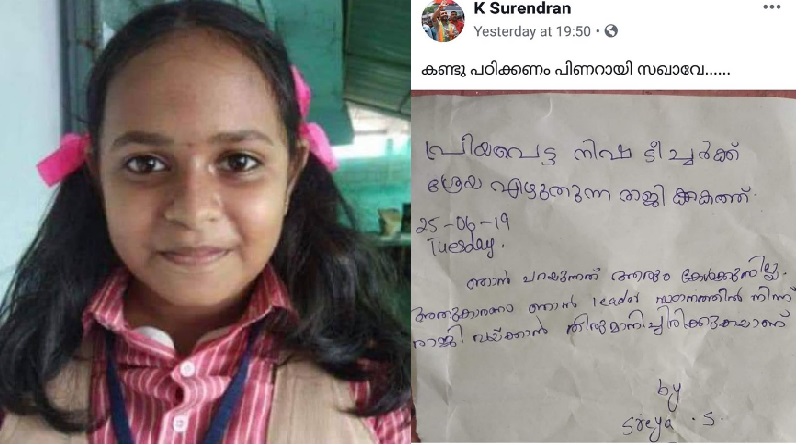 K Surendran
Yesterday at 19:50
കണ്ടു പഠിക്കണം പിണറായി സഖാവേ......
പ്രിയപെട്ട നിഷ ടീച്ചർക്ക്
ശ്രേയ എഴുതുന്ന രാജി കത്ത്.
25-06-19
Tuesday.
ഞാൻ പറയുന്നത് ആരും കേൾക്കുന്നില്ല.
അതുകാരണം ഞാൻ leader സ്ഥാനത്തിൽ നിന്ന്
രാജി വയ്ക്കാൻ തീരുമാനിച്ചിരിക്കുകയാണ്
by
Sreya .S.